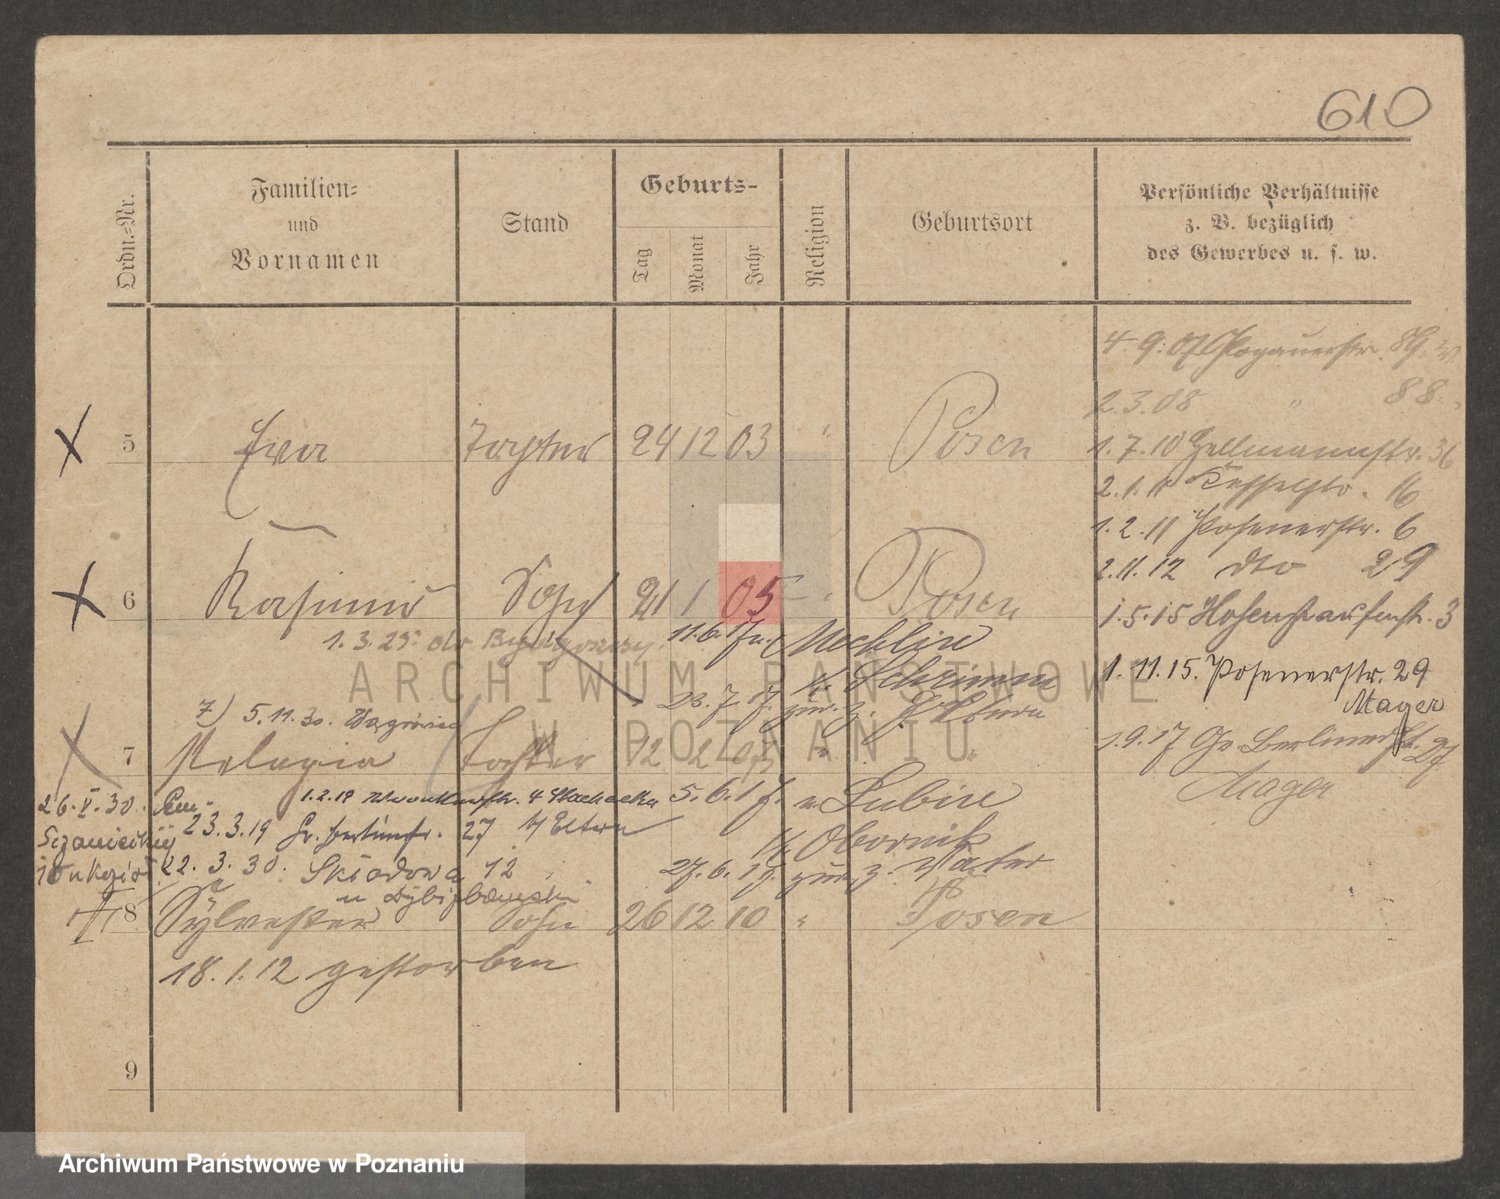 610
Ordn.=Nr.
Familien=
und
Vornamen
Stand
Geburts-
Tag
Monat
Jahr
Religion
Geburtsort
Persönliche Verhältnisse
z. B. bezüglich
des Gewerbes u. s. w.
4.9.07 Glogauerstr. 89
2.3.08 " 88
5 Eva Tochter 24 12 03 " Posen
1.7.10 36
2.1.11 16
1.2.11 Posenerstr. 6
2.11.12 dto 29
6 Kasimir Sohn 21 1 05 Posen
1.5.15 Hohenstaufenstr. 3
1.3.25
11.6.17 n. Mechlin
Schrimm
1.11.15. Posenerstr. 29
Mager
23.7.17 zur. z. Eltern
7) 5.11.30. Wągrowiec
7 Pelagia Tochter 12 2 07 "
1.9.17 Gr. Berlinerstr. 27
Mager
26.V.30.
1.2.19 4
5.6.17. n. Lubin
23.3.19 Gr. Berlinerstr. 27 b/ Eltern
Obornik
22.3.30. Składowa 12
27.6.17. zur. z. Vater
8 Sylvester Sohn 26 12 10 " Posen
18.1.12 gestorben
9
ARCHIWUM PAŃSTWOWE
W POZNANIU
Archiwum Państwowe w Poznaniu